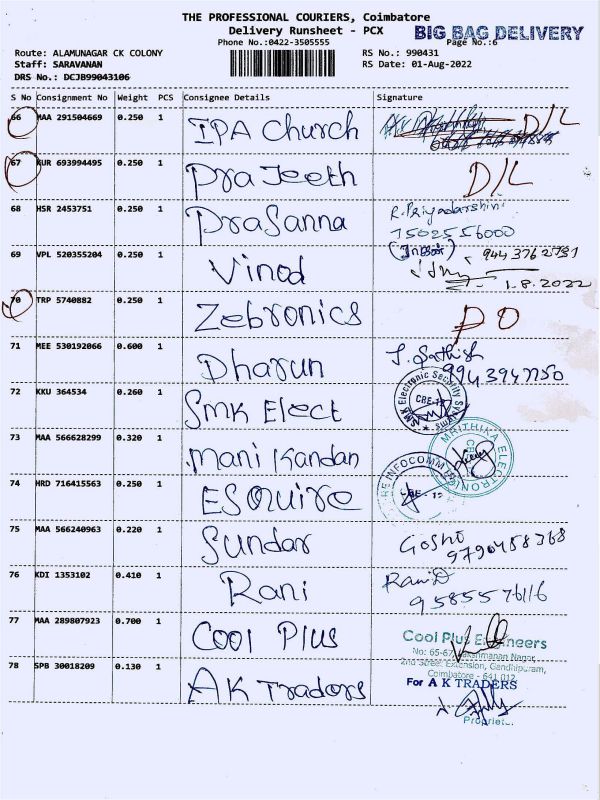 THE PROFESSIONAL COURIERS, Coimbatore
Delivery Runsheet - PCX
BIG BAG DELIVERY
Phone No.:0422-3505555
Page No.:6
Route: ALAMUNAGAR CK COLONY
RS No.: 990431
Staff: SARAVANAN
RS Date: 01-Aug-2022
DRS No.: DCJB99043106
S No Consignment No Weight PCS Consignee Details Signature
66 MAA 291504669 0.250 1 IPA Church D/L
67 KUR 693994495 0.250 1 Pra Jeeth D/L
68 HSR 2453751 0.250 1 PraSanna R. Priyadarshini
7502556000
69 VPL 520355204 0.250 1 Vinod
1.8.2022
70 TRP 5740882 0.250 1 Zebronics DO
71 MEE 530192066 0.600 1 Dharun J. Sathish
72 KKU 364534 0.260 1 SMK Elect
SMK Electronic Security
73 MAA 566628299 0.320 1 Mani Kandan
MRITHIKA ELECTRONIC
74 HRD 716415563 0.250 1 ESquire
INFOCOMM
75 MAA 566240963 0.220 1 Sundar
9790458368
76 KDI 1353102 0.410 1 Rani Rani D
9585576116
77 MAA 289807923 0.700 1 COOl PluS
Cool Plus Engineers
No: 65-67, Lakshmanan Nagar,
2nd Street Extension, Gandhipuram,
Coimbatore - 641 012.
78 SPB 30018209 0.130 1 AK Tradors
For A K TRADERS